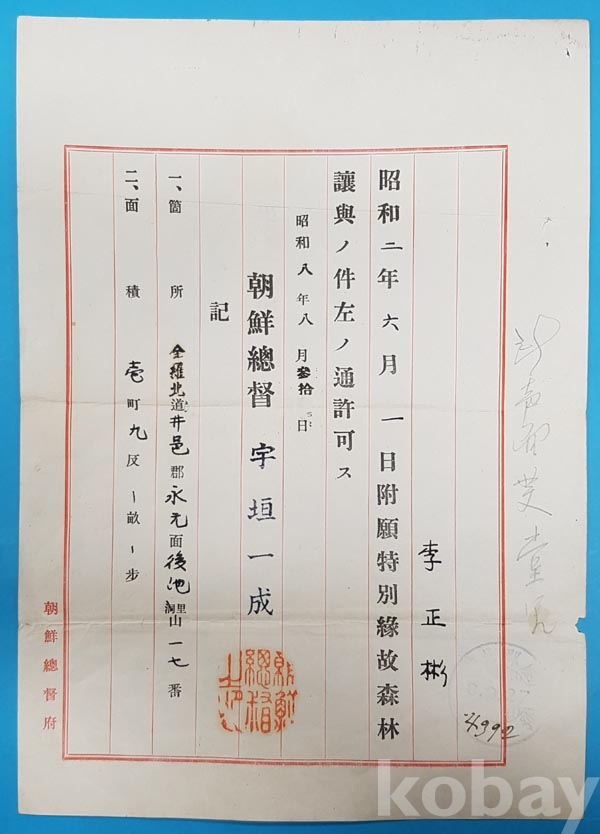 李正彬
昭和二年六月一日附願特別緣故森林
讓與ノ件左ノ通許可ス
昭和八年八月參拾日
朝鮮總督 宇垣一成
記
一、箇所 全羅北道井邑郡永元面後池洞里山一七番
二、面積 壱町九反ー畝ー步
朝鮮總督府
朝鮮總督之印
kobay